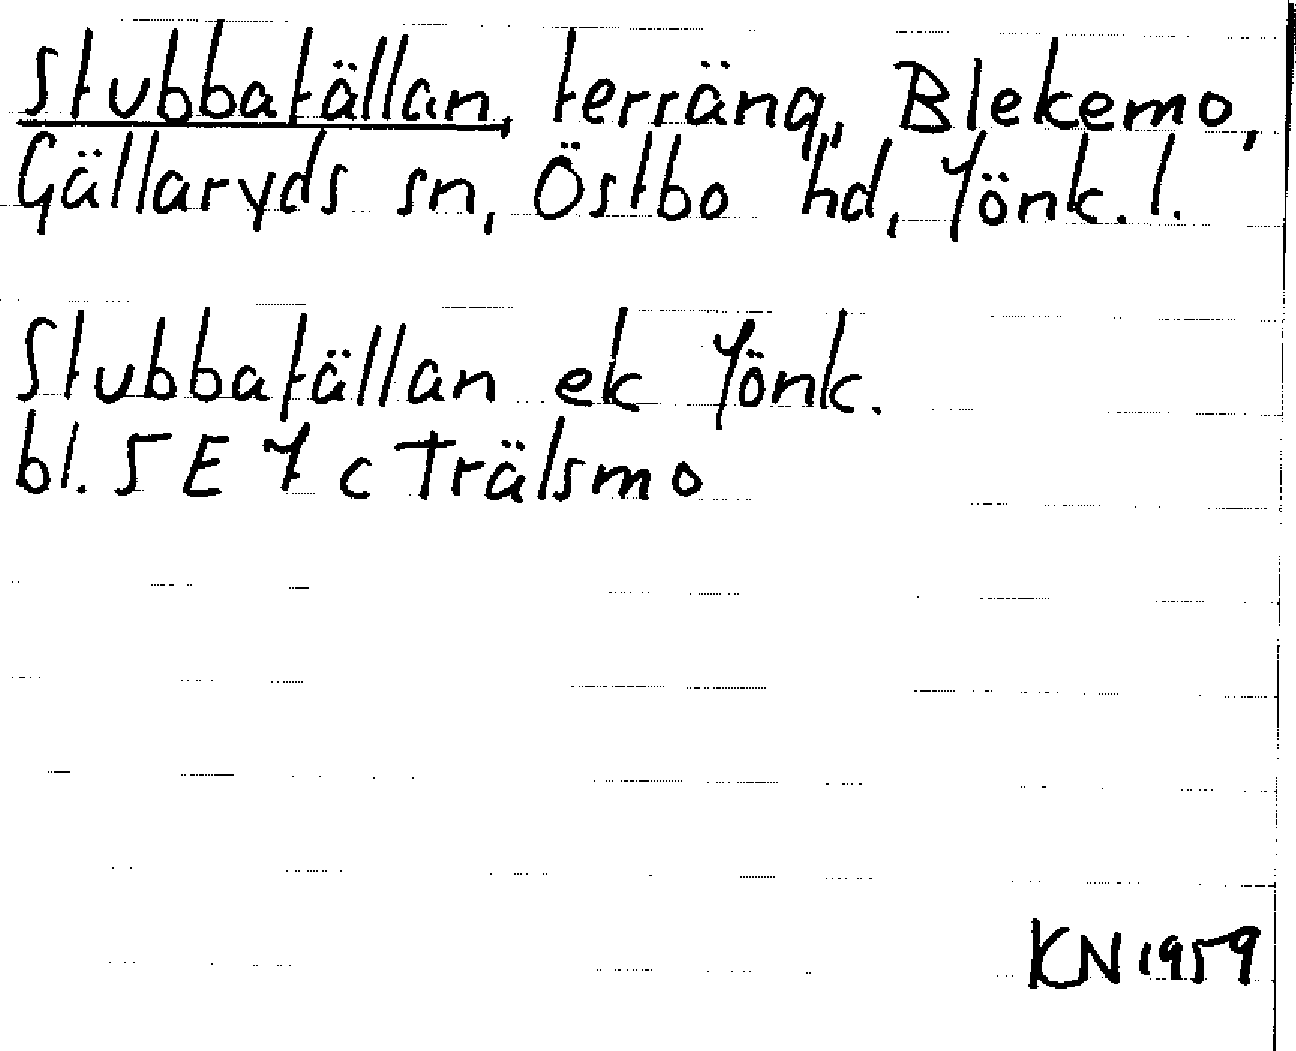 Stubbafällan, terräng, Blekemo,
Gällaryds sn, Östbo hd, Jönk. l.
Stubbafällan ek Jönk.
bl. 5 E 7 c Trälsmo
KN 1959